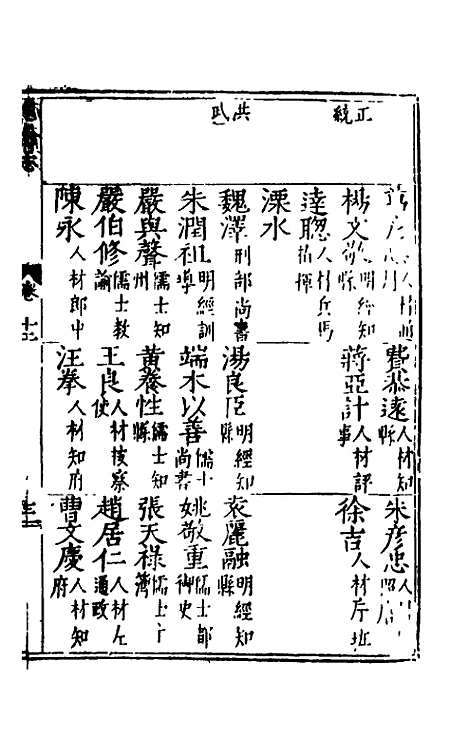 正統
洪武
費恭遠人材知縣
朱彦忠人
楊文敬明經知縣
蔣亞計人材評事
徐吉人材斤班
達聰人材兵馬指揮
溧水
魏澤刑部尚書
湯良臣明經知縣
袁麗融明經知縣
朱潤祖明經訓導
端木以善儒士尚書
姚敬重儒士都御史
嚴與聲儒士知州
黄養性儒士知縣
張天祿儒士
嚴伯修儒士教諭
王良人材按察使
趙居仁人材左通政
陳永人材郎中
汪拳人材知府
曹文慶人材知府
卷十